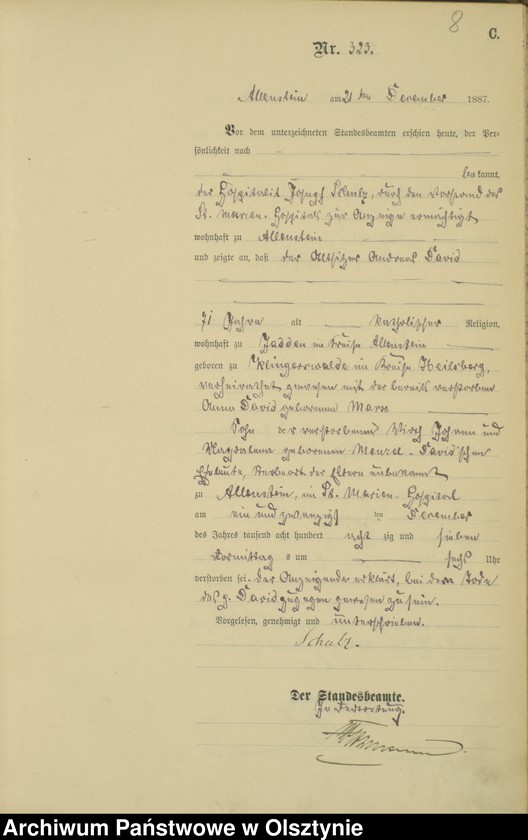 8
C.
Nr. 323.
Allenstein am 21 ten December 1887.
Vor dem unterzeichneten Standesbeamten erschien heute, der Per-
sönlichkeit nach
bekannt,
der Hospitalit Joseph Schulz, durch den Vorstand des
St. Marien-Hospitals zur Anzeige ermächtigt
wohnhaft zu Allenstein
und zeigte an, daß der Altsitzer Andreas David
71 Jahre alt katholischer Religion,
wohnhaft zu Jadden im Kreise Allenstein
geboren zu Klingerswalde im Kreise Heilsberg,
verheirathet gewesen mit der bereits verstorbenen
Anna David geborenen Marx
Sohn der verstorbenen Wirth Johann und
Magdalena geborenen Menzel-David'schen
Eheleute, Sterbeort der Eltern unbekannt
zu Allenstein, im St. Marien-Hospital
am ein und zwanzigsten December
des Jahres tausend acht hundert acht zig und sieben
Vormittags um sechs Uhr
verstorben sei. Der Anzeigende erklärt, bei dem Tode
des p. David zugegen gewesen zu sein.
Vorgelesen, genehmigt und unterschrieben.
Schulz.
Der Standesbeamte.
In Vertretung.
Archiwum Państwowe w Olsztynie